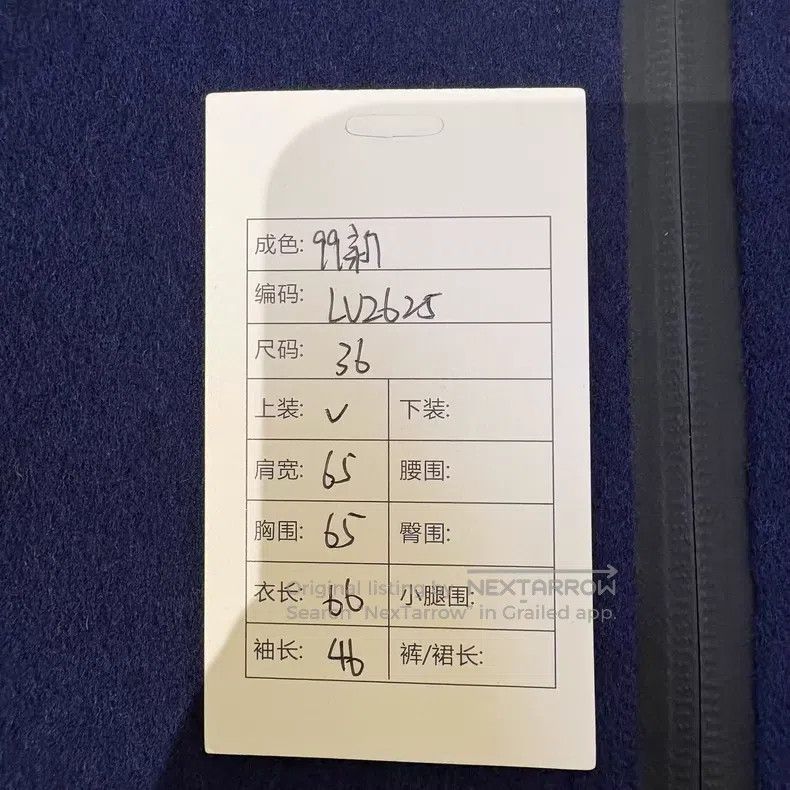 成色: 99新
编码: LV2625
尺码: 36
上装: ✓ 下装:
肩宽: 65 腰围:
胸围: 65 臀围:
衣长: 66 小腿围:
Original listing by NEXTARROW
Search "NexTarrow" in Grailed app.
袖长: 46 裤/裙长: